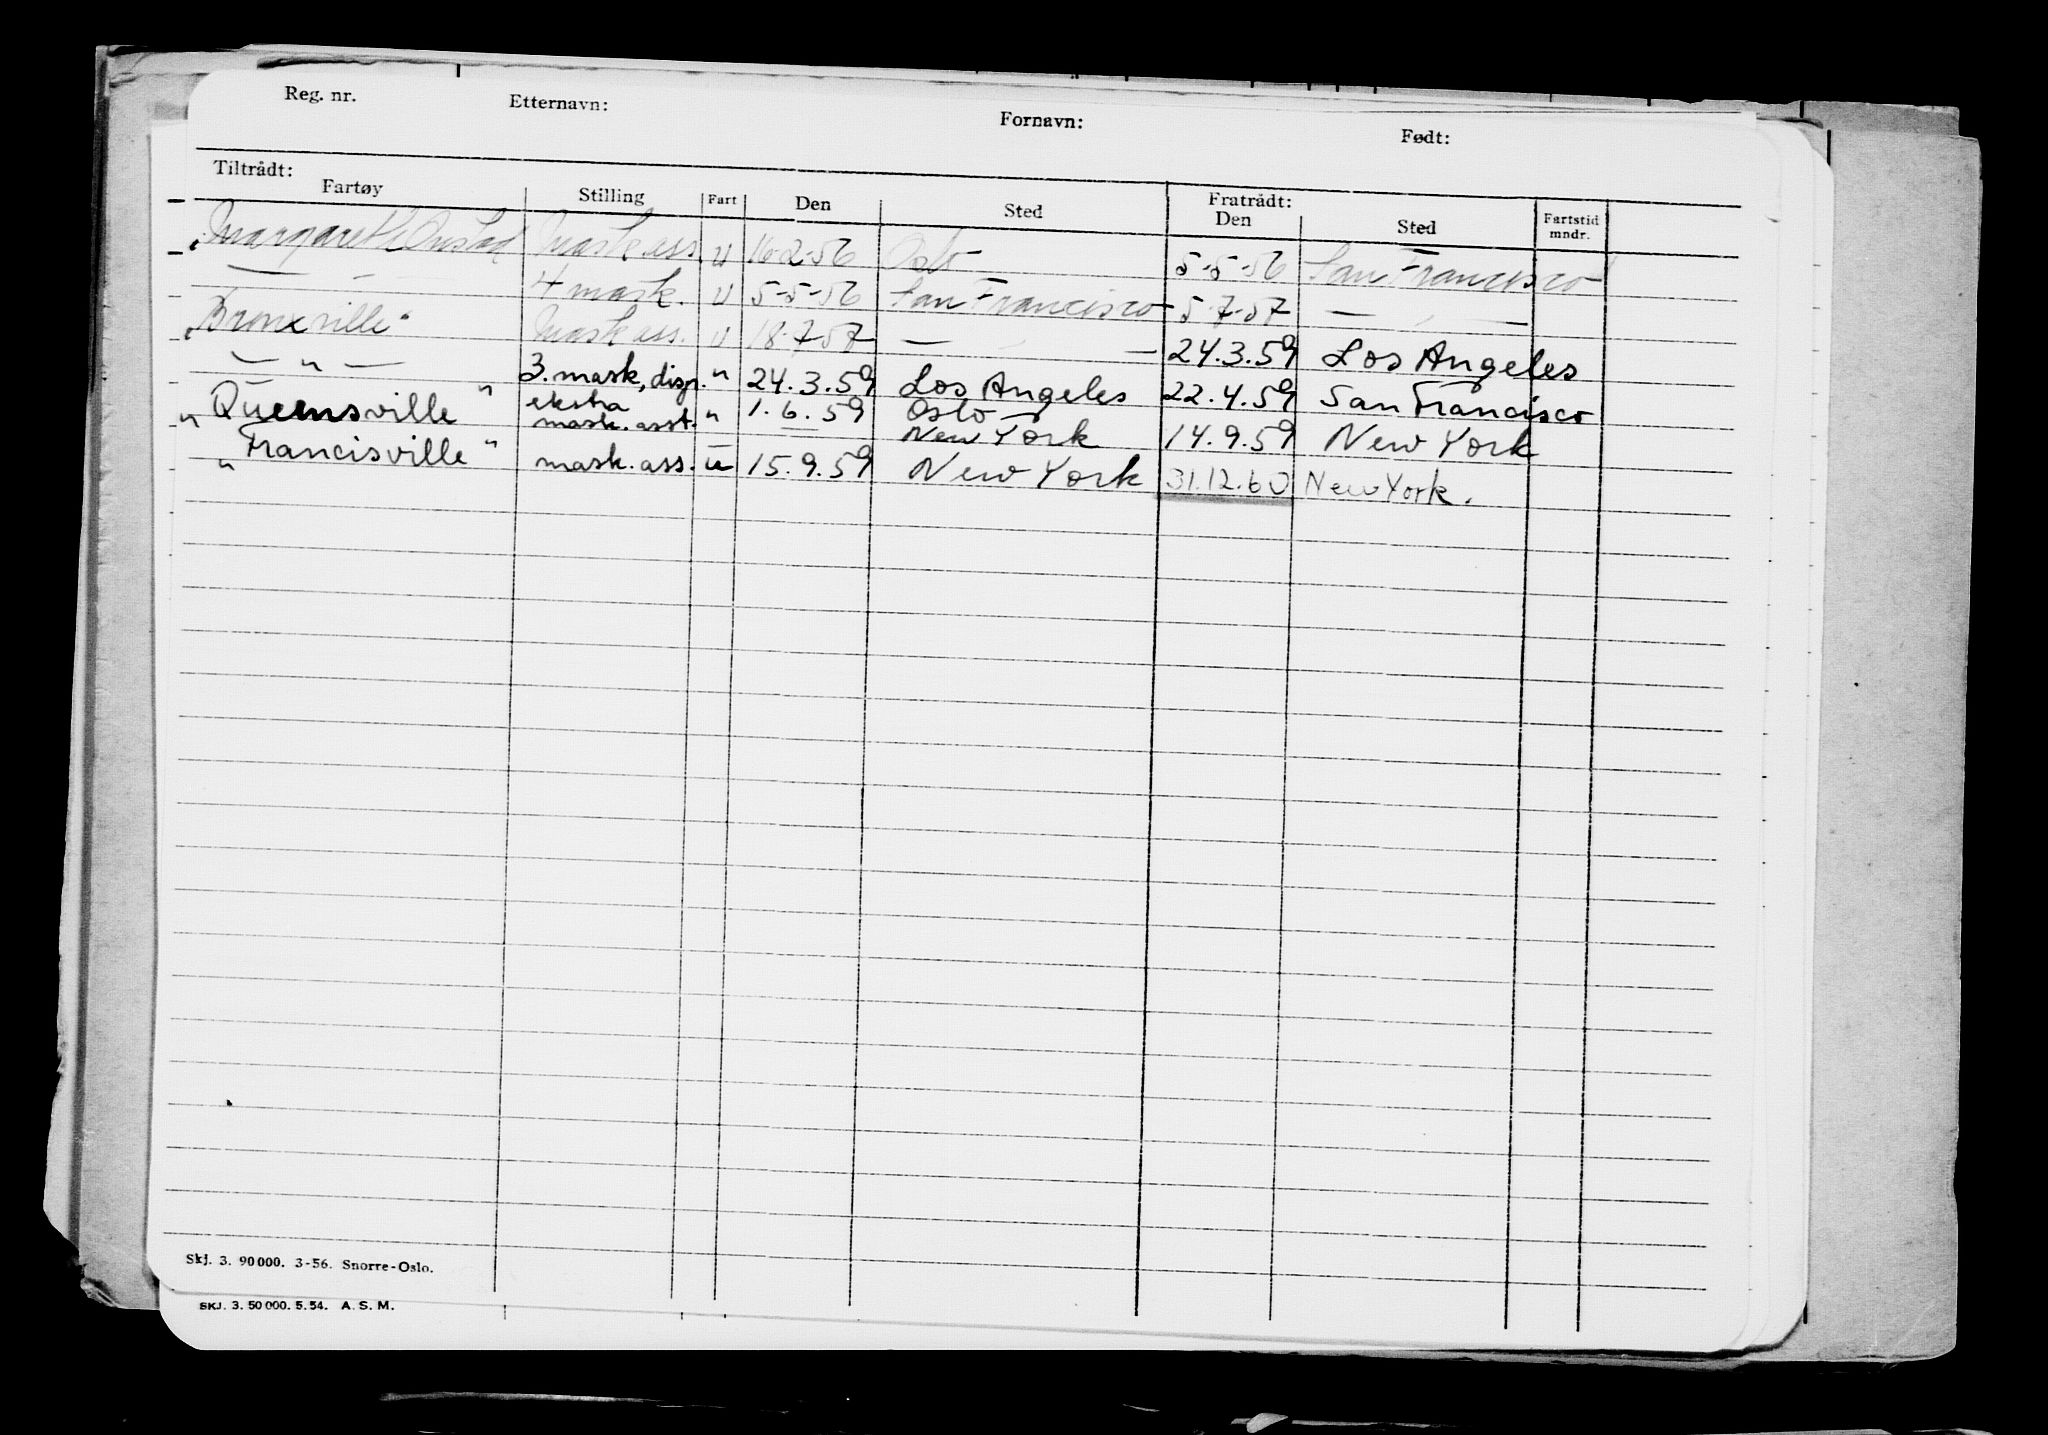 Reg. nr. Etternavn: Fornavn: Født:
Tiltrådt: Fratrådt:
Fartøy Stilling Fart Den Sted Den Sted Fartstid mndr.
"Margareth Onstad" Mask ass. u 16-2-56 Oslo 5-5-56 San Francisco
— " — 4 mask. u 5-5-56 San Francisco 5-7-57 — " —
"Bronxville" Mask ass. u 18-7-57 — " — 24.3.59 Los Angeles
— " — 3. mask, disp. " 24.3.59 Los Angeles 22.4.59 San Francisco
"Queensville" ekstra mask. asst. " 1.6.59 Oslo New York 14.9.59 New York
"Francisville" mask. ass. u 15.9.59 New York 31.12.60 New York.
Skj. 3. 90000. 3-56. Snorre-Oslo.
SKJ. 3. 50 000. 5. 54. A. S. M.